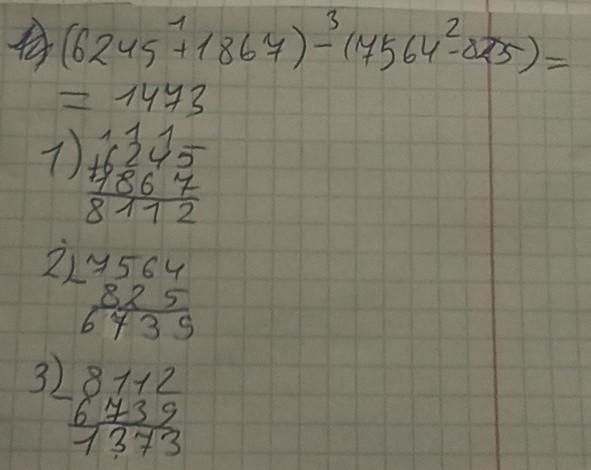 (6245 +¹ 1867) -³ (7564 -² 825) =
= 1473
1 1 1
1) +6245
1867
8112
2) -7564
825
6739
3) -8112
6739
1373